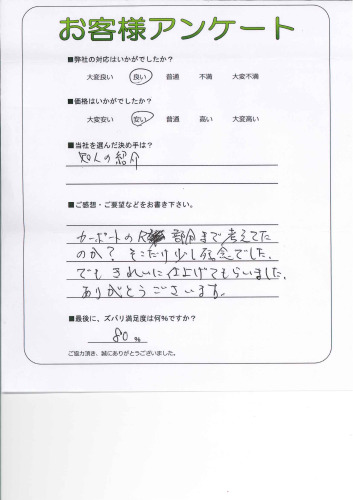 お客様アンケート
■弊社の対応はいかがでしたか？
大変良い 良い 普通 不満 大変不満
■価格はいかがでしたか？
大変安い 安い 普通 高い 大変高い
■当社を選んだ決め手は？
知人の紹介
■ご感想・ご要望などをお書き下さい。
カーポートの 部分まで考えてた
のか？そこだけ少し残念でした。
でもきれいに仕上げてもらいました。
ありがとうございます。
■最後に、ズバリ満足度は何%ですか？
80 %
ご協力頂き、誠にありがとうございました。